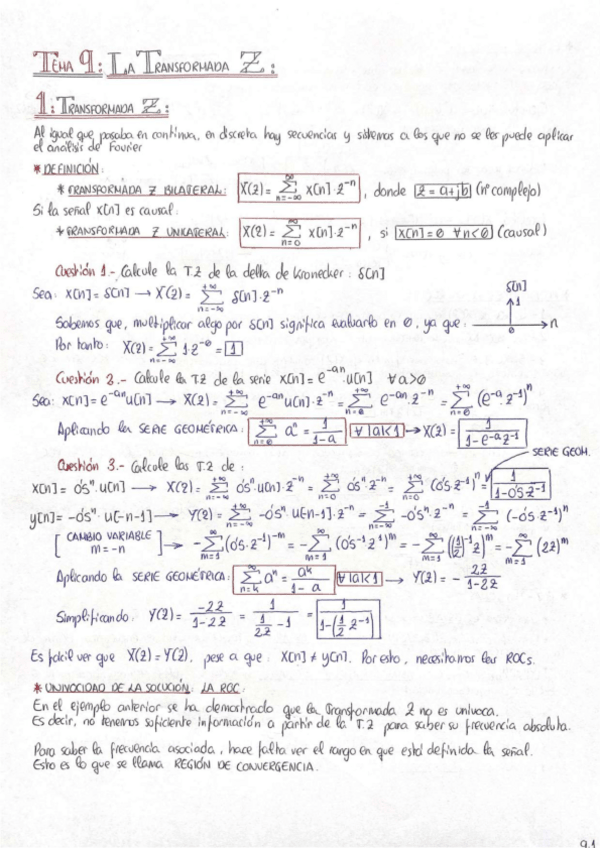 TEMA 9: LA TRANSFORMADA Z:
1: TRANSFORMADA Z:
Al igual que pasaba en continua, en discreta hay secuencias y sistemas a los que no se les puede aplicar
el análisis de Fourier
* DEFINICIÓN:
* TRANSFORMADA Z BILATERAL: X(z) = ∑_{n=-∞}^{∞} x[n]·z^{-n}, donde z = a+jb (nº complejo)
Si la señal x[n] es causal:
* TRANSFORMADA Z UNILATERAL: X(z) = ∑_{n=0}^{∞} x[n]·z^{-n}, si x[n] = 0 ∀n<0 (causal)
Cuestión 1.- Calcule la T.Z de la delta de Kronecker: δ[n]
Sea: x[n] = δ[n] → X(z) = ∑_{n=-∞}^{+∞} δ[n]·z^{-n}
δ[n]
1
0
n
Sabemos que, multiplicar algo por δ[n] significa evaluarlo en 0, ya que:
Por tanto: X(z) = ∑_{n=-∞}^{+∞} 1·z^{-0} = 1
Cuestión 2.- Calcule la TZ de la serie x[n] = e^{-an}·u[n] ∀a>0
Sea: x[n] = e^{-an}u[n] → X(z) = ∑_{n=-∞}^{+∞} e^{-an}u[n]·z^{-n} = ∑_{n=0}^{+∞} e^{-an}·z^{-n} = ∑_{n=0}^{+∞} (e^{-a}·z^{-1})^n
Aplicando la SERIE GEOMÉTRICA: ∑_{n=0}^{+∞} a^n = 1/(1-a) ∀|a|<1 → X(z) = 1/(1-e^{-a}z^{-1})
SERIE GEOM.
Cuestión 3.- Calcule las T.Z de:
x[n] = 0'5^n·u[n] → X(z) = ∑_{n=-∞}^{+∞} 0'5^n·u[n]·z^{-n} = ∑_{n=0}^{+∞} 0'5^n·z^{-n} = ∑_{n=0}^{+∞} (0'5·z^{-1})^n = 1/(1-0'5·z^{-1})
y[n] = -0'5^n·u[-n-1] → Y(z) = ∑_{n=-∞}^{+∞} -0'5^n·u[-n-1]·z^{-n} = ∑_{n=-∞}^{-1} -0'5^n·z^{-n} = ∑_{n=-∞}^{-1} (-0'5·z^{-1})^n
[CAMBIO VARIABLE m = -n] → -∑_{m=1}^{+∞} (0'5·z^{-1})^{-m} = -∑_{m=1}^{+∞} (0'5^{-1}z^1)^m = -∑_{m=1}^{+∞} ((1/2)^{-1}z)^m = -∑_{m=1}^{+∞} (2z)^m
Aplicando la SERIE GEOMÉTRICA: ∑_{n=k}^{+∞} a^n = a^k/(1-a) ∀|a|<1 → Y(z) = -2z/(1-2z)
Simplificando: Y(z) = -2z/(1-2z) = 1/(1/2z - 1) = 1/(1-(1/2 z^{-1})
Es fácil ver que X(z) = Y(z), pese a que: x[n] ≠ y[n]. Por esto, necesitamos las ROCs.
* UNIVOCIDAD DE LA SOLUCIÓN: LA ROC:
En el ejemplo anterior se ha demostrado que la transformada Z no es unívoca.
Es decir, no tenemos suficiente información a partir de la T.Z para saber su frecuencia absoluta.
Para saber la frecuencia asociada, hace falta ver el rango en que está definida la señal.
Esto es lo que se llama REGIÓN DE CONVERGENCIA.
9.1